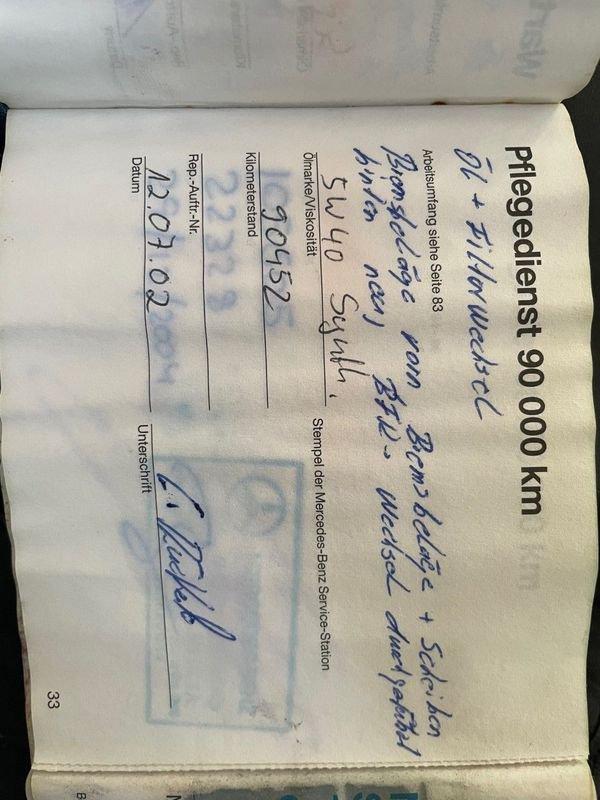 Pflegedienst 90 000 km
Öl + Filterwechsel
Arbeitsumfang siehe Seite 83
Bremsbeläge vorn Bremsbeläge + Scheiben
hinten neu, BFK-Wechsel durchgeführt
5W40 Synth.
Ölmarke/Viskosität
Stempel der Mercedes-Benz Service-Station
90452
Kilometerstand
22328
Rep.-Auftr.-Nr.
12.07.02
Datum
Unterschrift
33